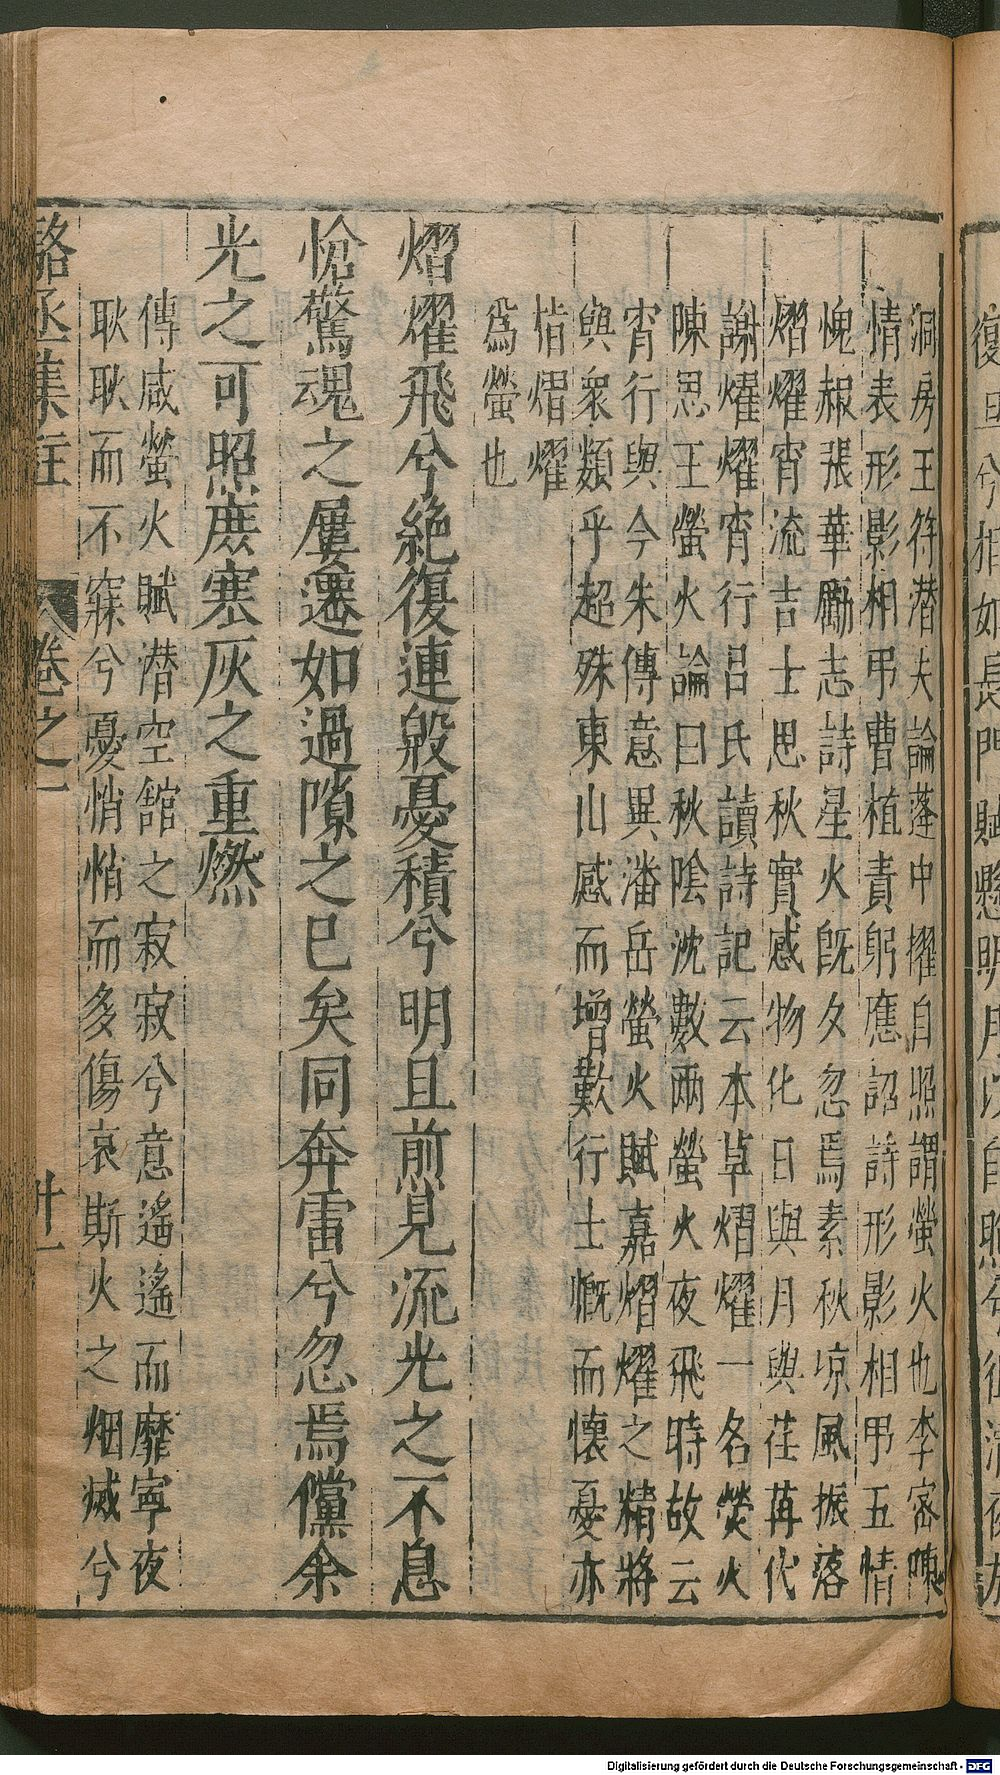 洞房王符潛夫論蓬中擢自照謂螢火也李密陳
情表形影相弔曹植責躬應詔詩形影相弔五情
愧赧張華勵志詩星火旣夕忽焉素秋凉風振落
熠燿宵流吉士思秋實感物化日與月與荏苒代
謝熠燿宵行呂氏讀詩記云本草熠燿一名熒火
陳思王螢火論曰秋陰沈數雨螢火夜飛時故云
宵行與今朱傳意異潘岳螢火賦嘉熠燿之精將
與衆類乎超殊東山感而增歎行士慨而懷憂亦
指熠燿
爲螢也
熠燿飛兮絶復連殷憂積兮明且煎見流光之不息
愴驚魂之屢遷如過隙之已矣同奔雷兮忽焉儻余
光之可照庶寒灰之重燃
傅咸螢火賦潛空館之寂寂兮意遙遙而靡寧夜
耿耿而不寐兮憂悄悄而多傷哀斯火之烟滅兮
駱丞集註 卷之一 廿一
Digitalisierung gefördert durch die Deutsche Forschungsgemeinschaft - DFG